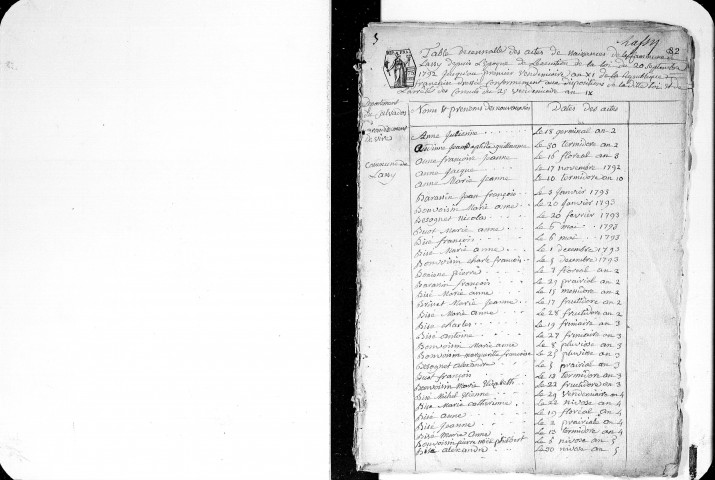 5
Lassy
82
Table decennalle des actes de naissances de la commune de
Lassy depuis l'epoque de l'execution de la loi du 20 septembre
1792 jusqu'au premier vendemiaire an XI de la republique
francaise dressée conformement aux dispositions de la ditte loi et de
l'arreté des consuls du 25 vendemiaire an 10
departement
du Calvados
arrondissement
de vire
Commune de
Lassy
Noms et prenoms des nouveaux nés
Dates des actes
Anne Julienne le 18 germinal an 2
guillaume le 30 termidor an 2
Anne françoise Jeanne le 16 floreal an 3
Anne Jacque le 17 novembre 1792
Anne Marie Jeanne le 10 termidor an 10
Baravin Jean françois le 3 janvier 1793
Bonvoisin Marie anne le 20 janvier 1793
Besognet Nicolas le 20 fevrier 1793
Buot Marie anne le 6 mai 1793
Bisé françois le 6 mai 1793
Bisé Marie anne le 1 decembre 1793
Bonvoisin charle francois le 5 decembre 1793
pierre le 2 floreal an 2
Baravin françois le 29 prairial an 2
Bisé Marie anne le 15 messidore an 2
Brinet Marie Jeanne le 17 fructidore an 2
Bisé Marie anne le 28 fructidore an 2
Bisé charles le 19 frimaire an 3
Bisé antoine le 27 frimaire an 3
Bonvoisin Marie anne le 8 pluviose an 3
Bonvoisin margueritte francoise le 25 pluviose an 3
Besognet alexandre le 5 prairial an 3
Buot françois le 13 termidore an 3
Bonvoisin Marie Elizabeth le 22 fructidore an 3
Bisé Michel Etienne le 29 vendemiaire an 4
Bisé Marie catherinne le 22 nivose an 4
Bisé anne le 19 floreal an 4
Bisé Jeanne le 2 prairial an 4
Bisé Marie Anne le 13 termidore an 4
Bonvoisin pierre philbert le 6 nivose an 5
Bisé alexandre le 30 nivose an 5